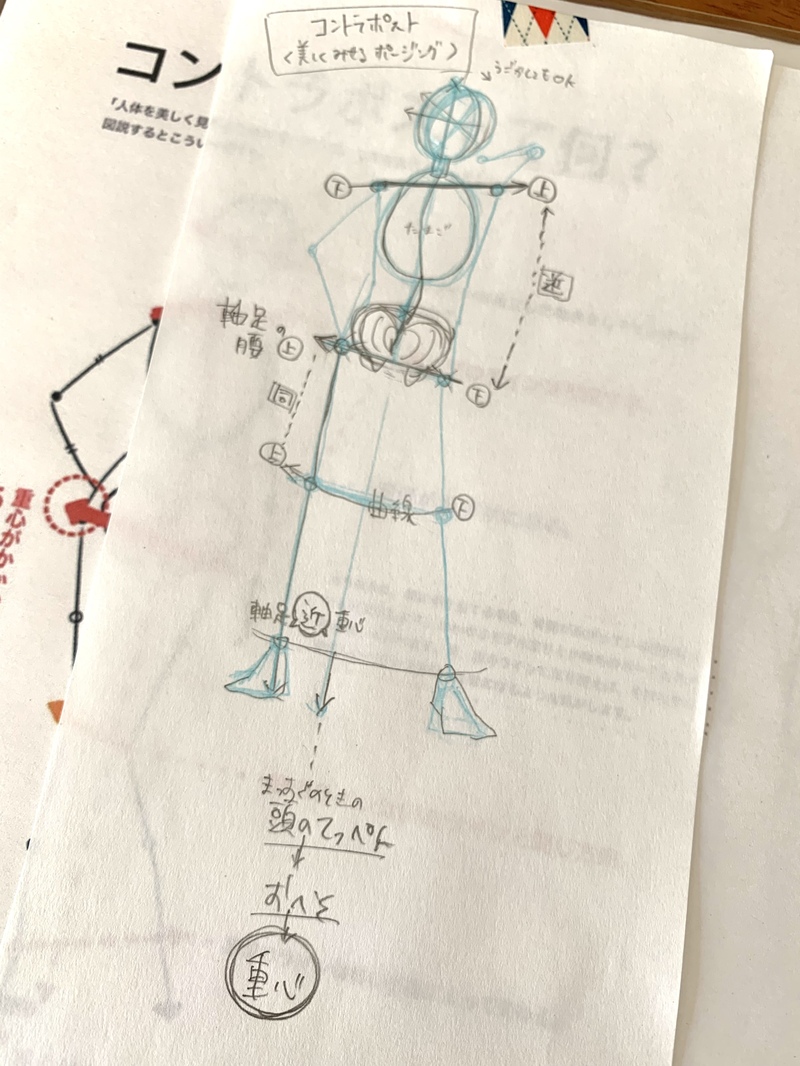 コントラポスト
〈美しくみせるポージング〉
うごかしてもOK
下
上
たまご
逆
軸足の
腰
上
下
同
上
曲線
下
軸足に近 重心
まっすぐのときの
頭のてっぺん
おへそ
重心
コン
「人体を美しく見
図説するとこうい
重心がかか